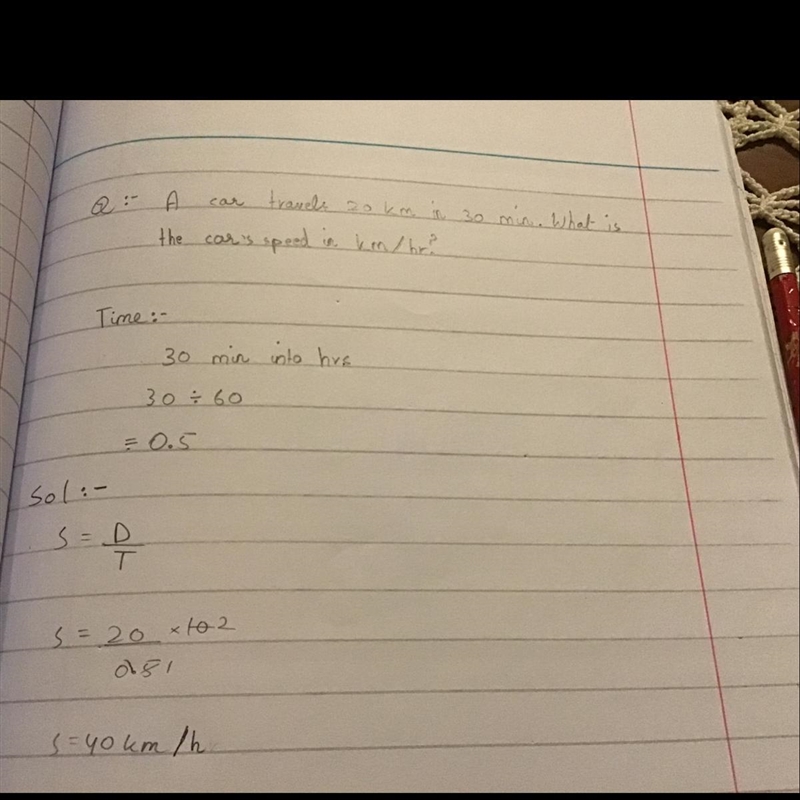 Q:- A car travels 20 km in 30 min. What is
the car's speed in km/hr?
Time:-
30 min into hrs
30 ÷ 60
= 0.5
Sol:-
S = D
T
S = 20 × 10 2
0.5 1
S = 40 km/h